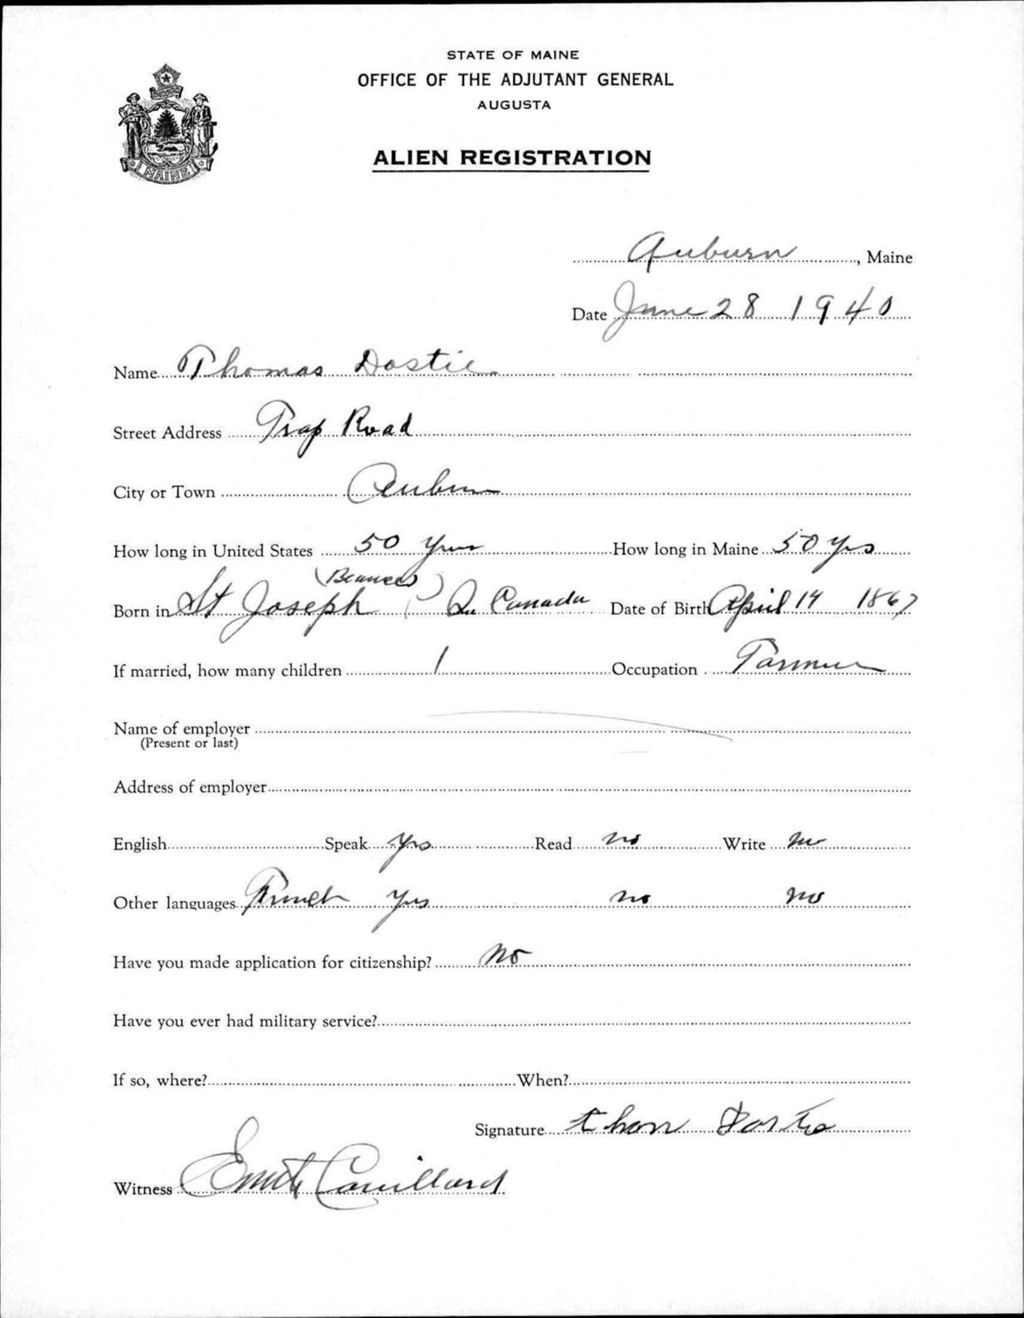 STATE OF MAINE
OFFICE OF THE ADJUTANT GENERAL
AUGUSTA
ALIEN REGISTRATION
MAINE
Auburn, Maine
Date June 28 1940
Name Thomas Dostie
Street Address Trap Road
City or Town Auburn
How long in United States 50 Years How long in Maine 50 Yrs
(Beauce)
Born in St Joseph Qu Canada Date of Birth April 14 1867
If married, how many children 1 Occupation Farmer
Name of employer
(Present or last)
Address of employer
English Speak yes Read no Write no
Other languages French yes no no
Have you made application for citizenship? No
Have you ever had military service?
If so, where? When?
Signature thom Dostie
Witness Couillard